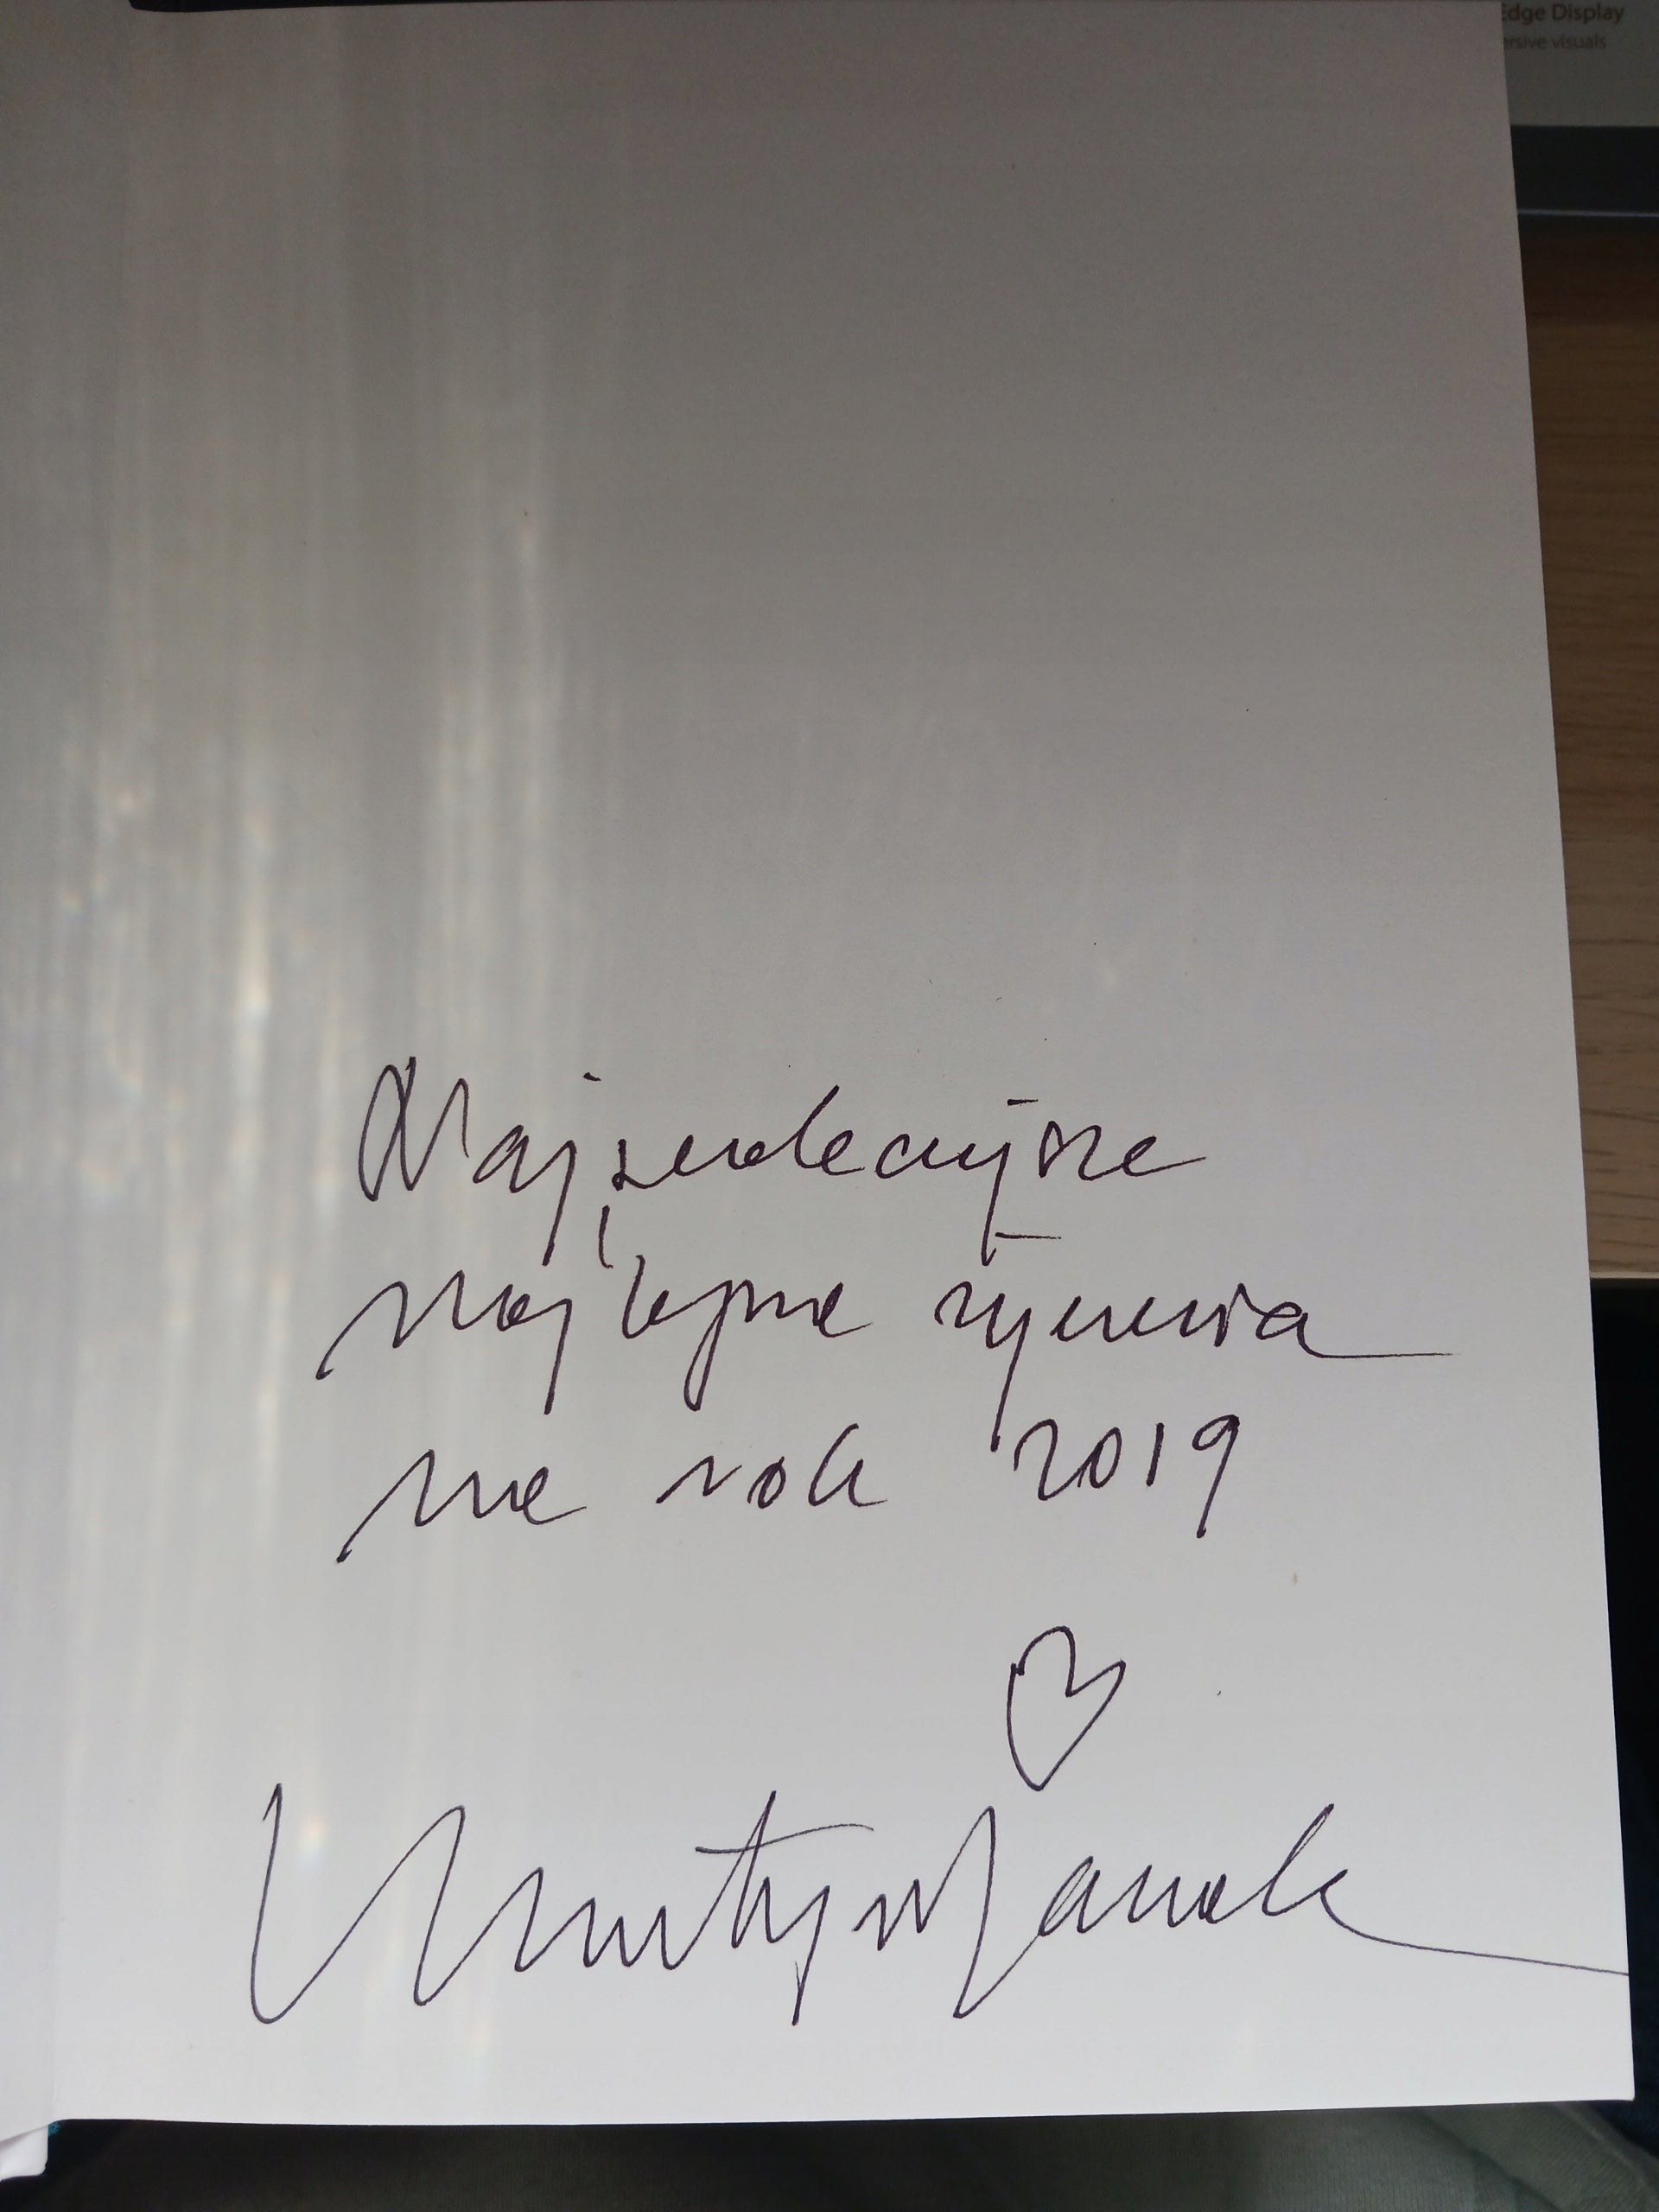 Edge Display
ersive visuals
Najserdeczniejsze
najlepsze życzenia
na rok 2019
Krystyna Janda